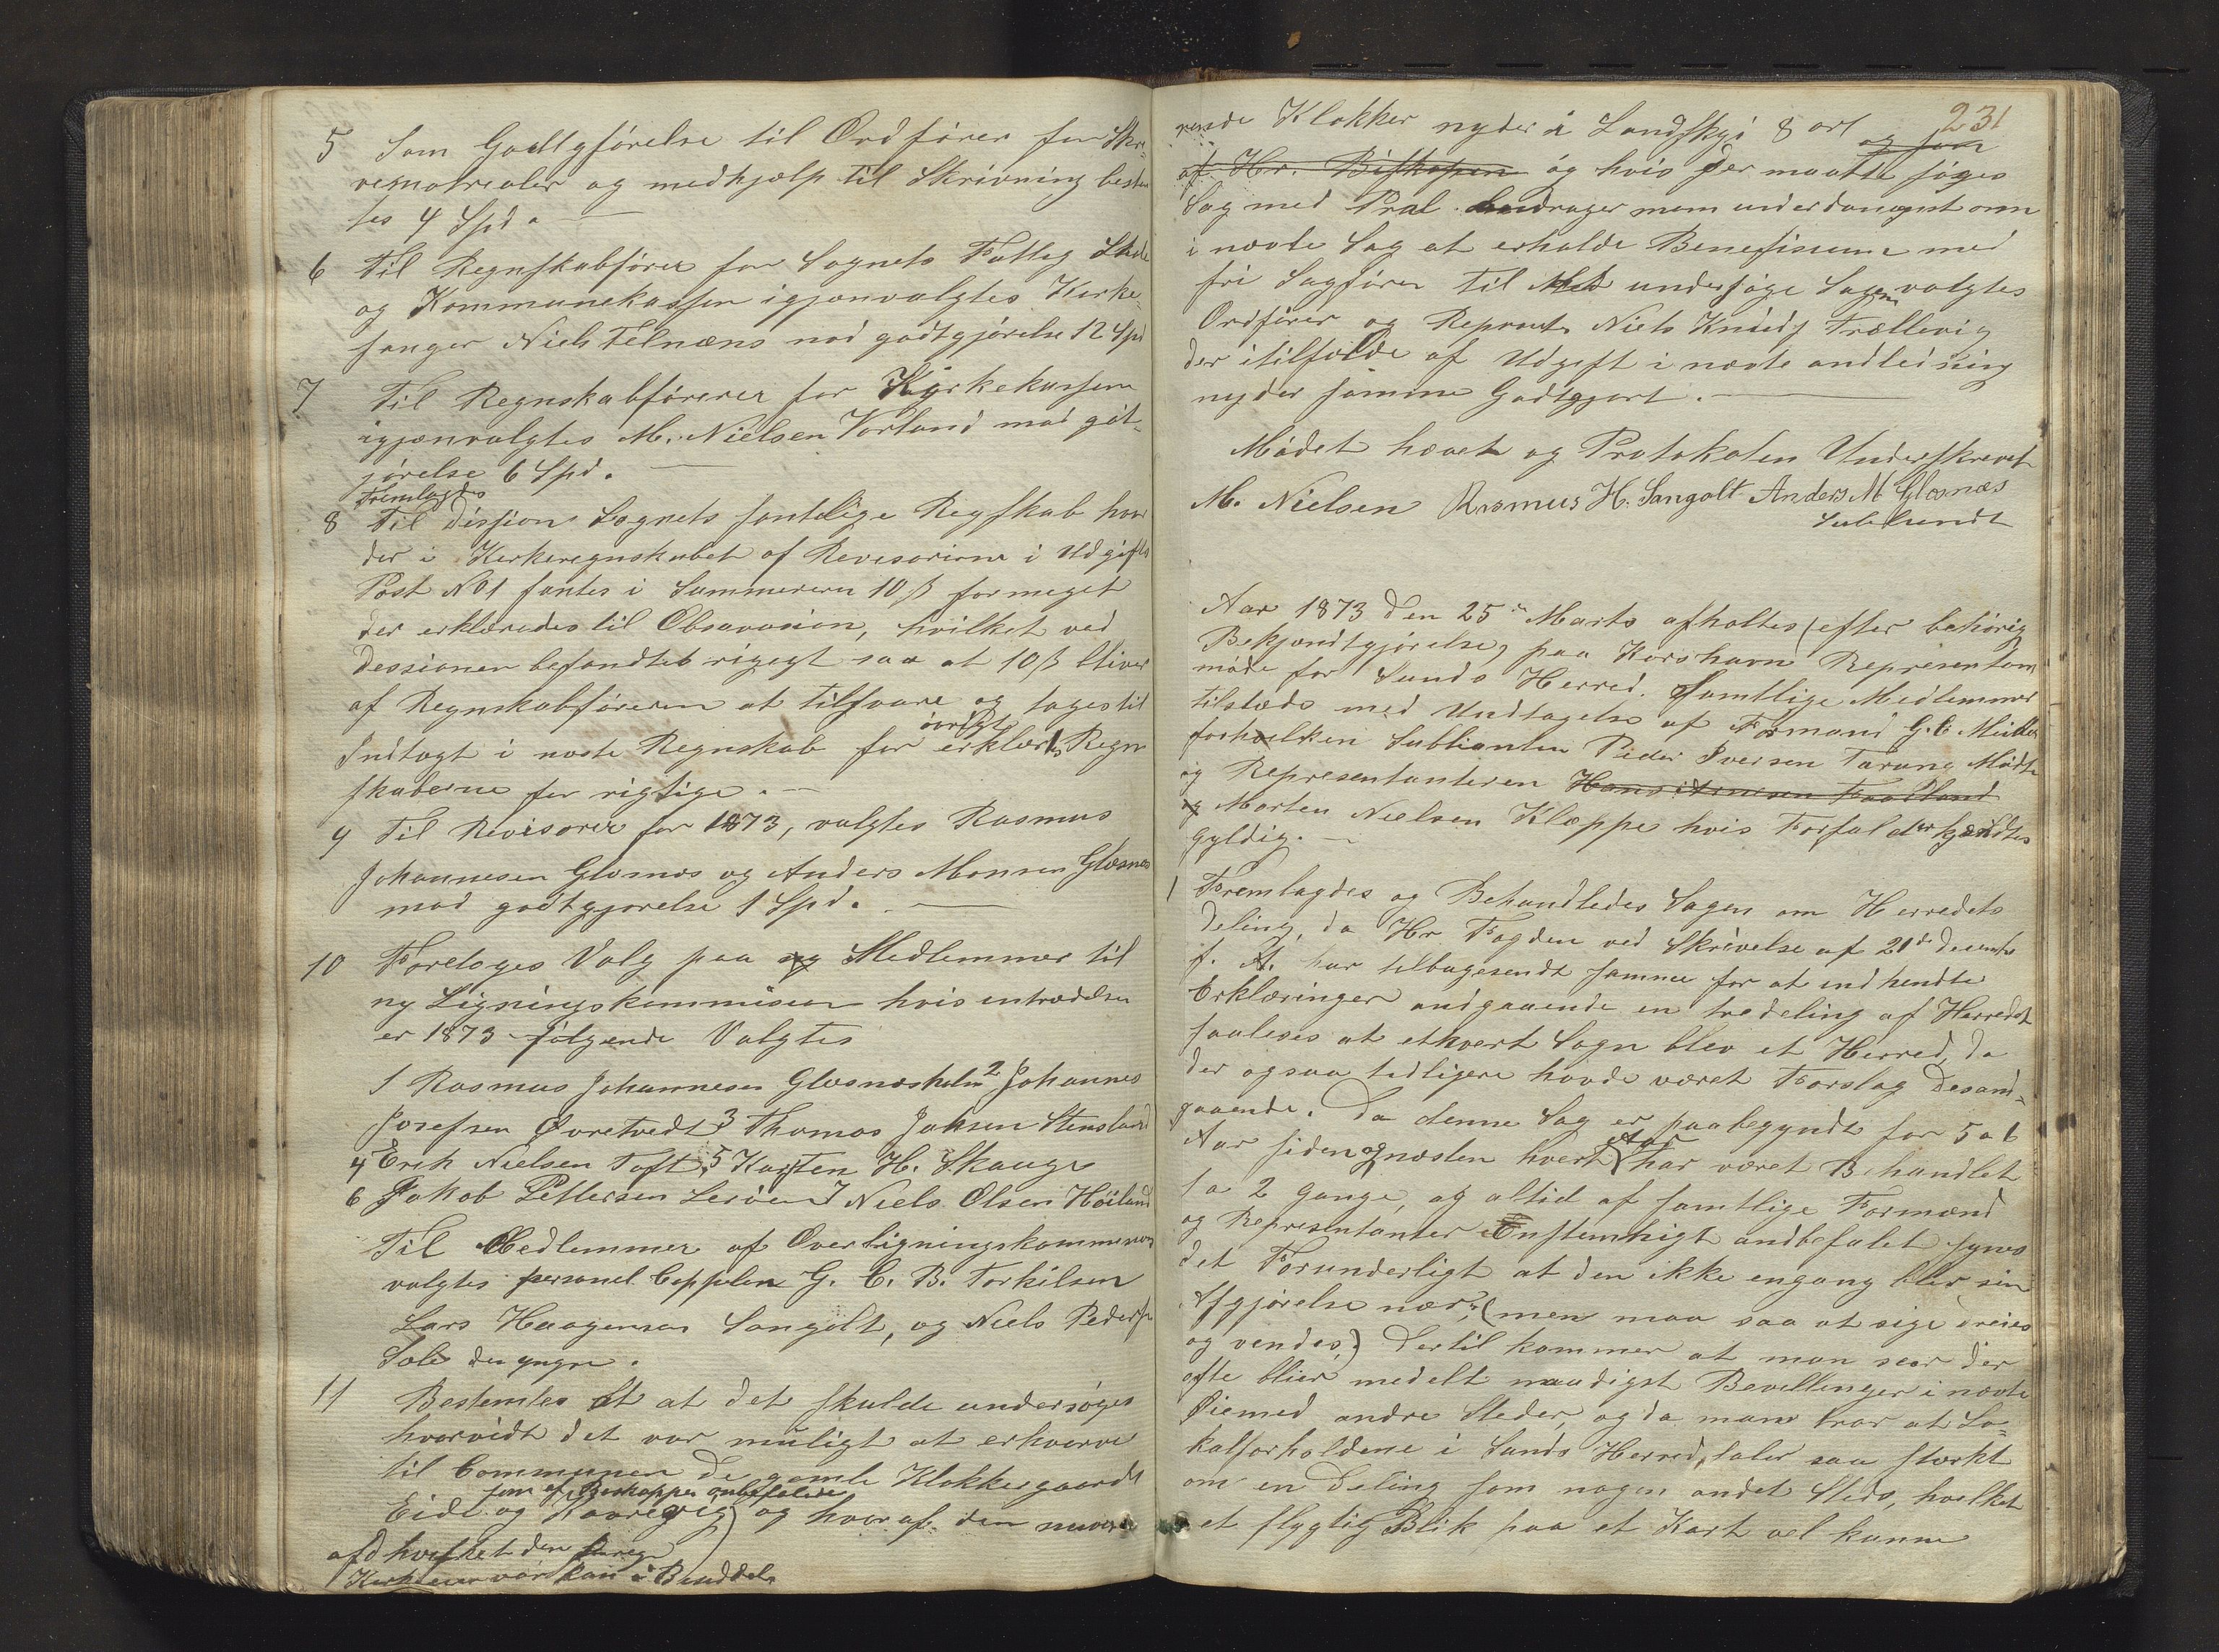 5 Som Godtgjørelse til Ordfører for Skri-
vematrealer og medhjælp til Skrivning bestem
tes 4 Spd.
6 Til Regnskabfører for Sognets Fattig Skole
og Kommunekassen igjenvalgtes Kirke-
sanger Niels Telnæns mod godtgjørelse 12 Spd
7 Til Regnskabfører for Kirkekassen
igjenvalgtes M. Nielsen Vorland mod got-
jørelse 6 Spd.
Fremlagdes
8 Til Dission Sognets samtlige Regskab hvor
der i Kerkeregnskabet af Revisorerne i Udgifts
Post No 1 fantes i Summeren 10 β formeget
der erklæredes til Observasion, hvilket ved
Dessionen befandtes rigtigt saa at 10 β bliver
af Regnskabføreren at tilsvare og tages til
Indtægt i næste Regnskab for øvrigt erklærtes Regn
skaberne for rigtige.
9 Til Revisorer for 1873, valgtes Rasmus
Johannesen Glæsnæs og Anders Monsen Glæsnæs
mod godtgjørelse 1 Spd.
10 Foretoges Valg paa og Medlemmer til
ny Ligningskommision hvis intrædelse
er 1873 følgende Valgtes
1 Rasmus Johannesen Glæsnæsholm 2 Johannes
Josefsen Øvretvedt 3 Thomas Johsen Stensland
4 Erik Nielsen Toft, 5 Karsten H. Skauge
6 Jakob Pettersen Lerøen 7 Niels Olsen Høiland
Til Medlemmer af Overligningskommesion
valgtes personel Cappelen G. C. B. Torkilsen
Lars Haagensen Sangolt, og Niels Pedersen
Sole den yngre.
11 Bestemtes at det skulde undersøges
hvorvidt det var muligt at erhverve
til Communen de gamle Klokkergaarde
som af Biskoppen anbefalede
Eide og Kaarevig) og hvoraf den nuvæ-
afd hvilket den
Kirkeeier vor kan i Besiddelse
231
rende Klokker nyder i Landskyi 8 ort og som
af Hr. Biskopen og hvis der maatte søges
Sag med Pral. andrager mam underdanegst om
i nævte Sag at erholde Benefisium med
fri Sagfører Til Med undersøge Sagen valgtes
Ordfører og Reprsnt. Niels Knuds Trællevig
der itilfælde af Udgift i nævte andledning
nyder samme Godtgjort.
Mødet hævet og Protokolen Underskrevet
M. Nielsen Rasmus H. Sangolt Anders M Glesnæs
Aar 1873 den 25de Marts afholtes (efter behørig
Bekjendtgjørelse, paa Korshavn Representan
møde for Sunds Herred. Samtlige Medlemmer
tilstæde med Undtagelse af Formand G. C. Müller
forhvilken Subliantin Peder Iversen Tarang Mødte
og Representanteren Hans Arnesen Fordland
og Morten Nielsen Klæppe hvis Forfal der kjendtes
gyldig.
1 Fremlagdes og Behandledes Sagen om Herredets
Deling, da Hr Fogden ved Skrivelse af 21de Decembr
f. A. har tilbagesendt samme for at indhendte
Erklæringer andgaaende en tredeling af Herredet
saaledes at ethvert Sogn blev et Herred, da
der ogsaa tidligere havde været Forslag desand-
gaaende. Da denne Sag er paabegyndt for 5 a 6
Aar siden og næsten hvert Aar har været Behandlet
ja 2 gange, og altid af samtlige Formænd
og Representanter Enstemmigt andbefalet synes
det Forunderligt at den ikke engang blev sin
Afgjørelse nær, (men maa saa at sige dreies
og vendes) Dertil kommer at man seer der
ofte blier medelt naadigst Bevellinger i nævte
Øiemed andre Steder, og da mam tror at Lo-
kalforholdene i Sunds Herred, taler saa stærkt
om en Deling som nogen andet Steds, hvilket
et flygtig Blik paa et Kart vel kunne